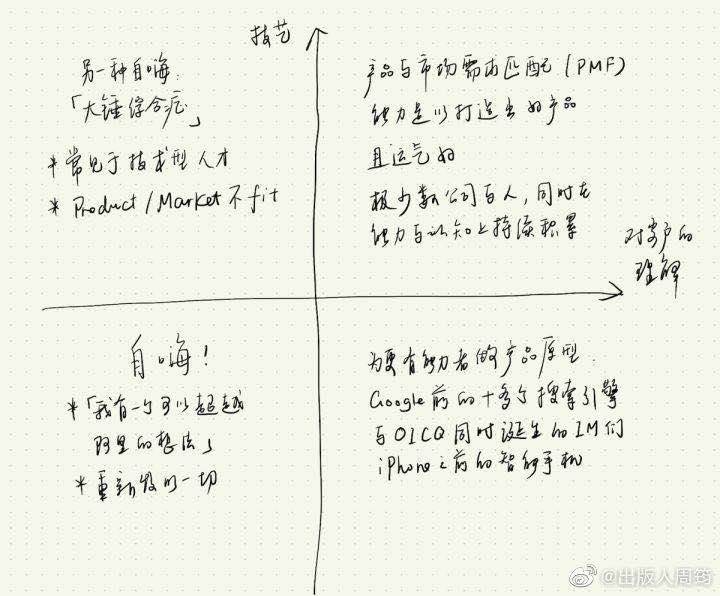 技艺
另一种自嗨
「大锤综合症」
* 常见于技术型人才
* Product/Market不fit
产品与市场需求匹配(PMF)
能力足以打造出好产品
且运气好
极少数公司与人,同时在
能力与认知上持续积累
对客户的
理解
自嗨!
*「我有一个可以超越
阿里的想法」
* 重新发明一切
为更有能力者做产品原型
Google前的十多个搜索引擎
与OICQ同时诞生的IM们
iPhone之前的智能手机
@出版人周筠